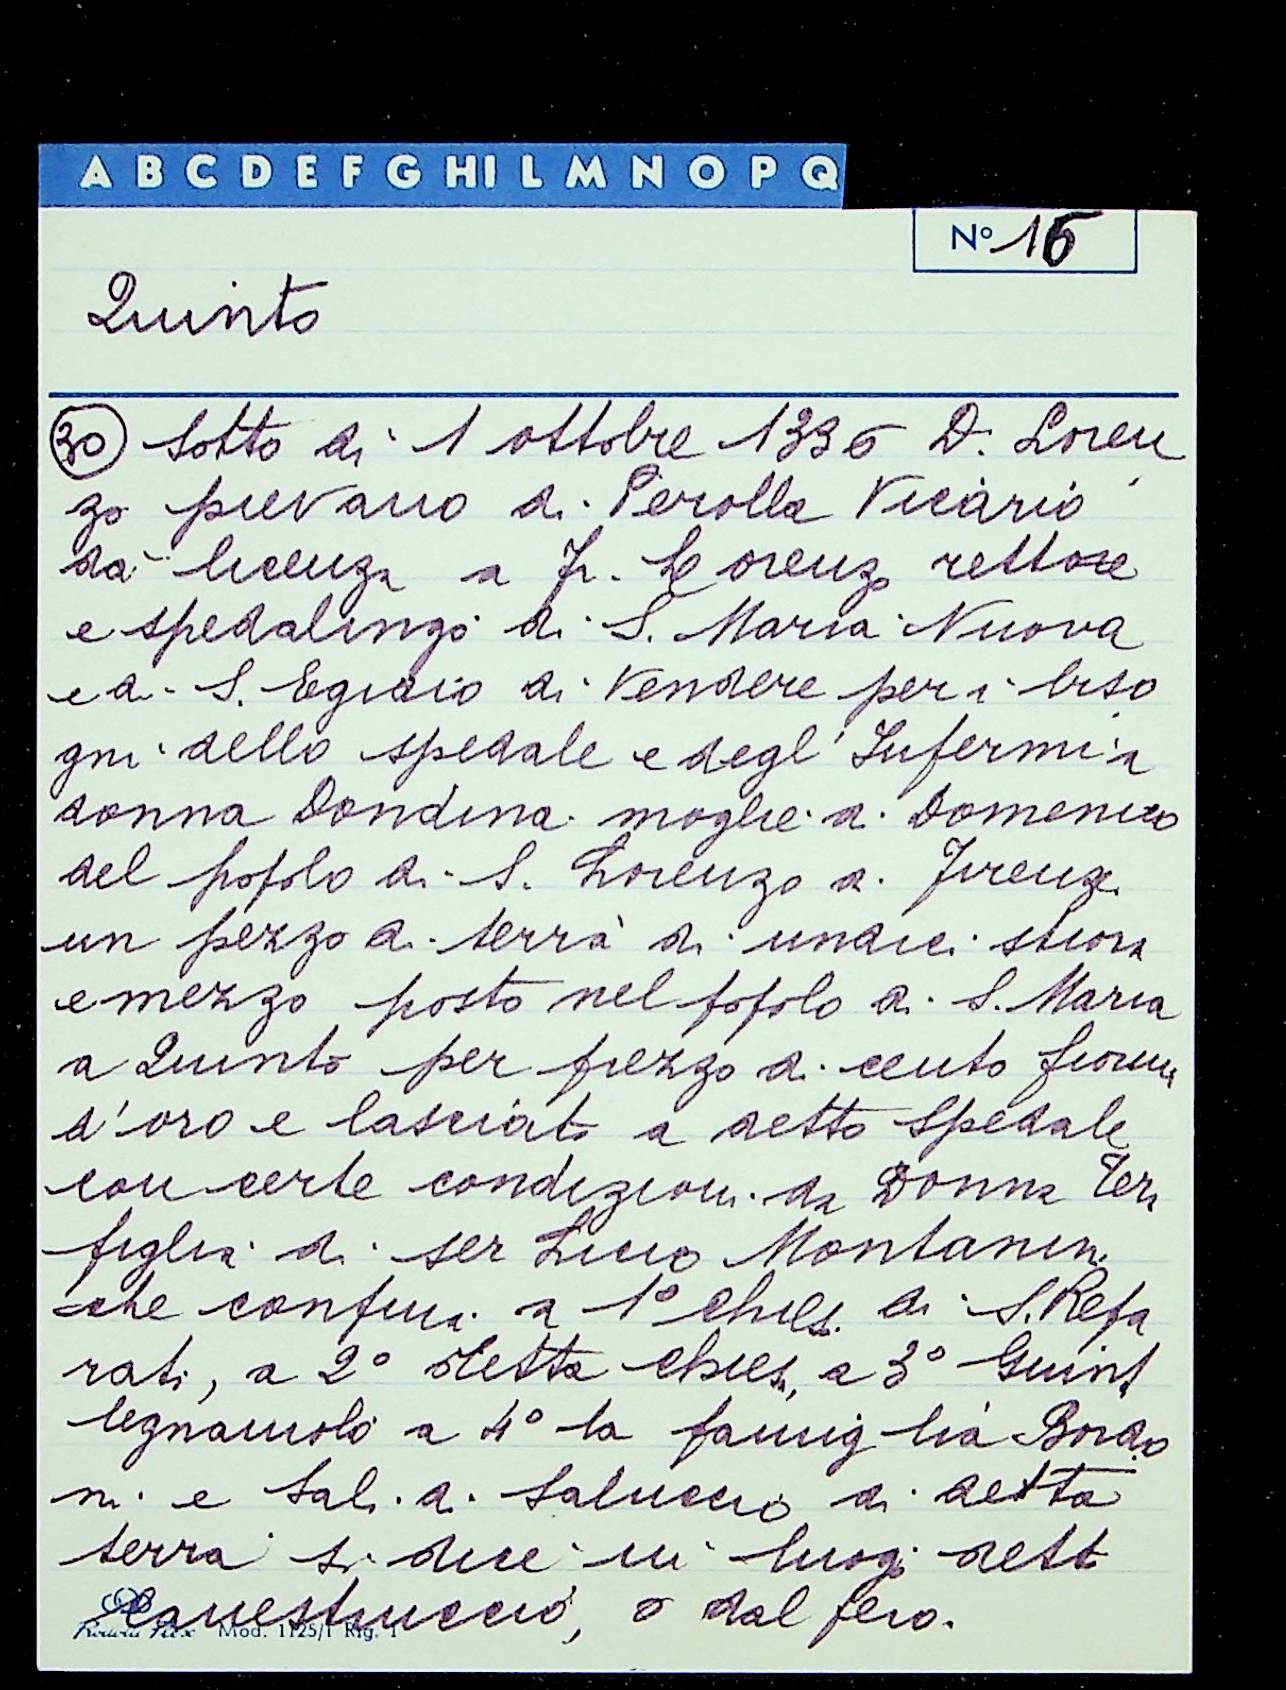 A B C D E F G HI L M N O P Q
Nº 16
Quinto
30 Sotto di 1 ottobre 1336 D. Loren
zo pievano di Perolla Vicario
dà licenza a Fr. Lorenzo rettore
e spedalingo di S. Maria Nuova
e di S. Egidio di Vendere per i biso
gni dello spedale e degl'Infermi a
donna Dondina moglie di Domenico
del popolo di S. Lorenzo di Firenze
un pezzo di terra di undici stiora
e mezzo posto nel popolo di S. Maria
a Quinto per prezzo di cento fiorini
d'oro e lasciato a detto Spedale
con certe condizioni da Donna
figlia di ser Lucio Montanini
che confini a 1º chies. di S. Repa
rati, a 2º detta chies, a 3º
legnaiolo a 4º la famiglia Bordo
ni e Sal. di Saluccio di detta
terra si dice in luogo dett
, o dal pero.
Mod. 1125/1 Rig. 1